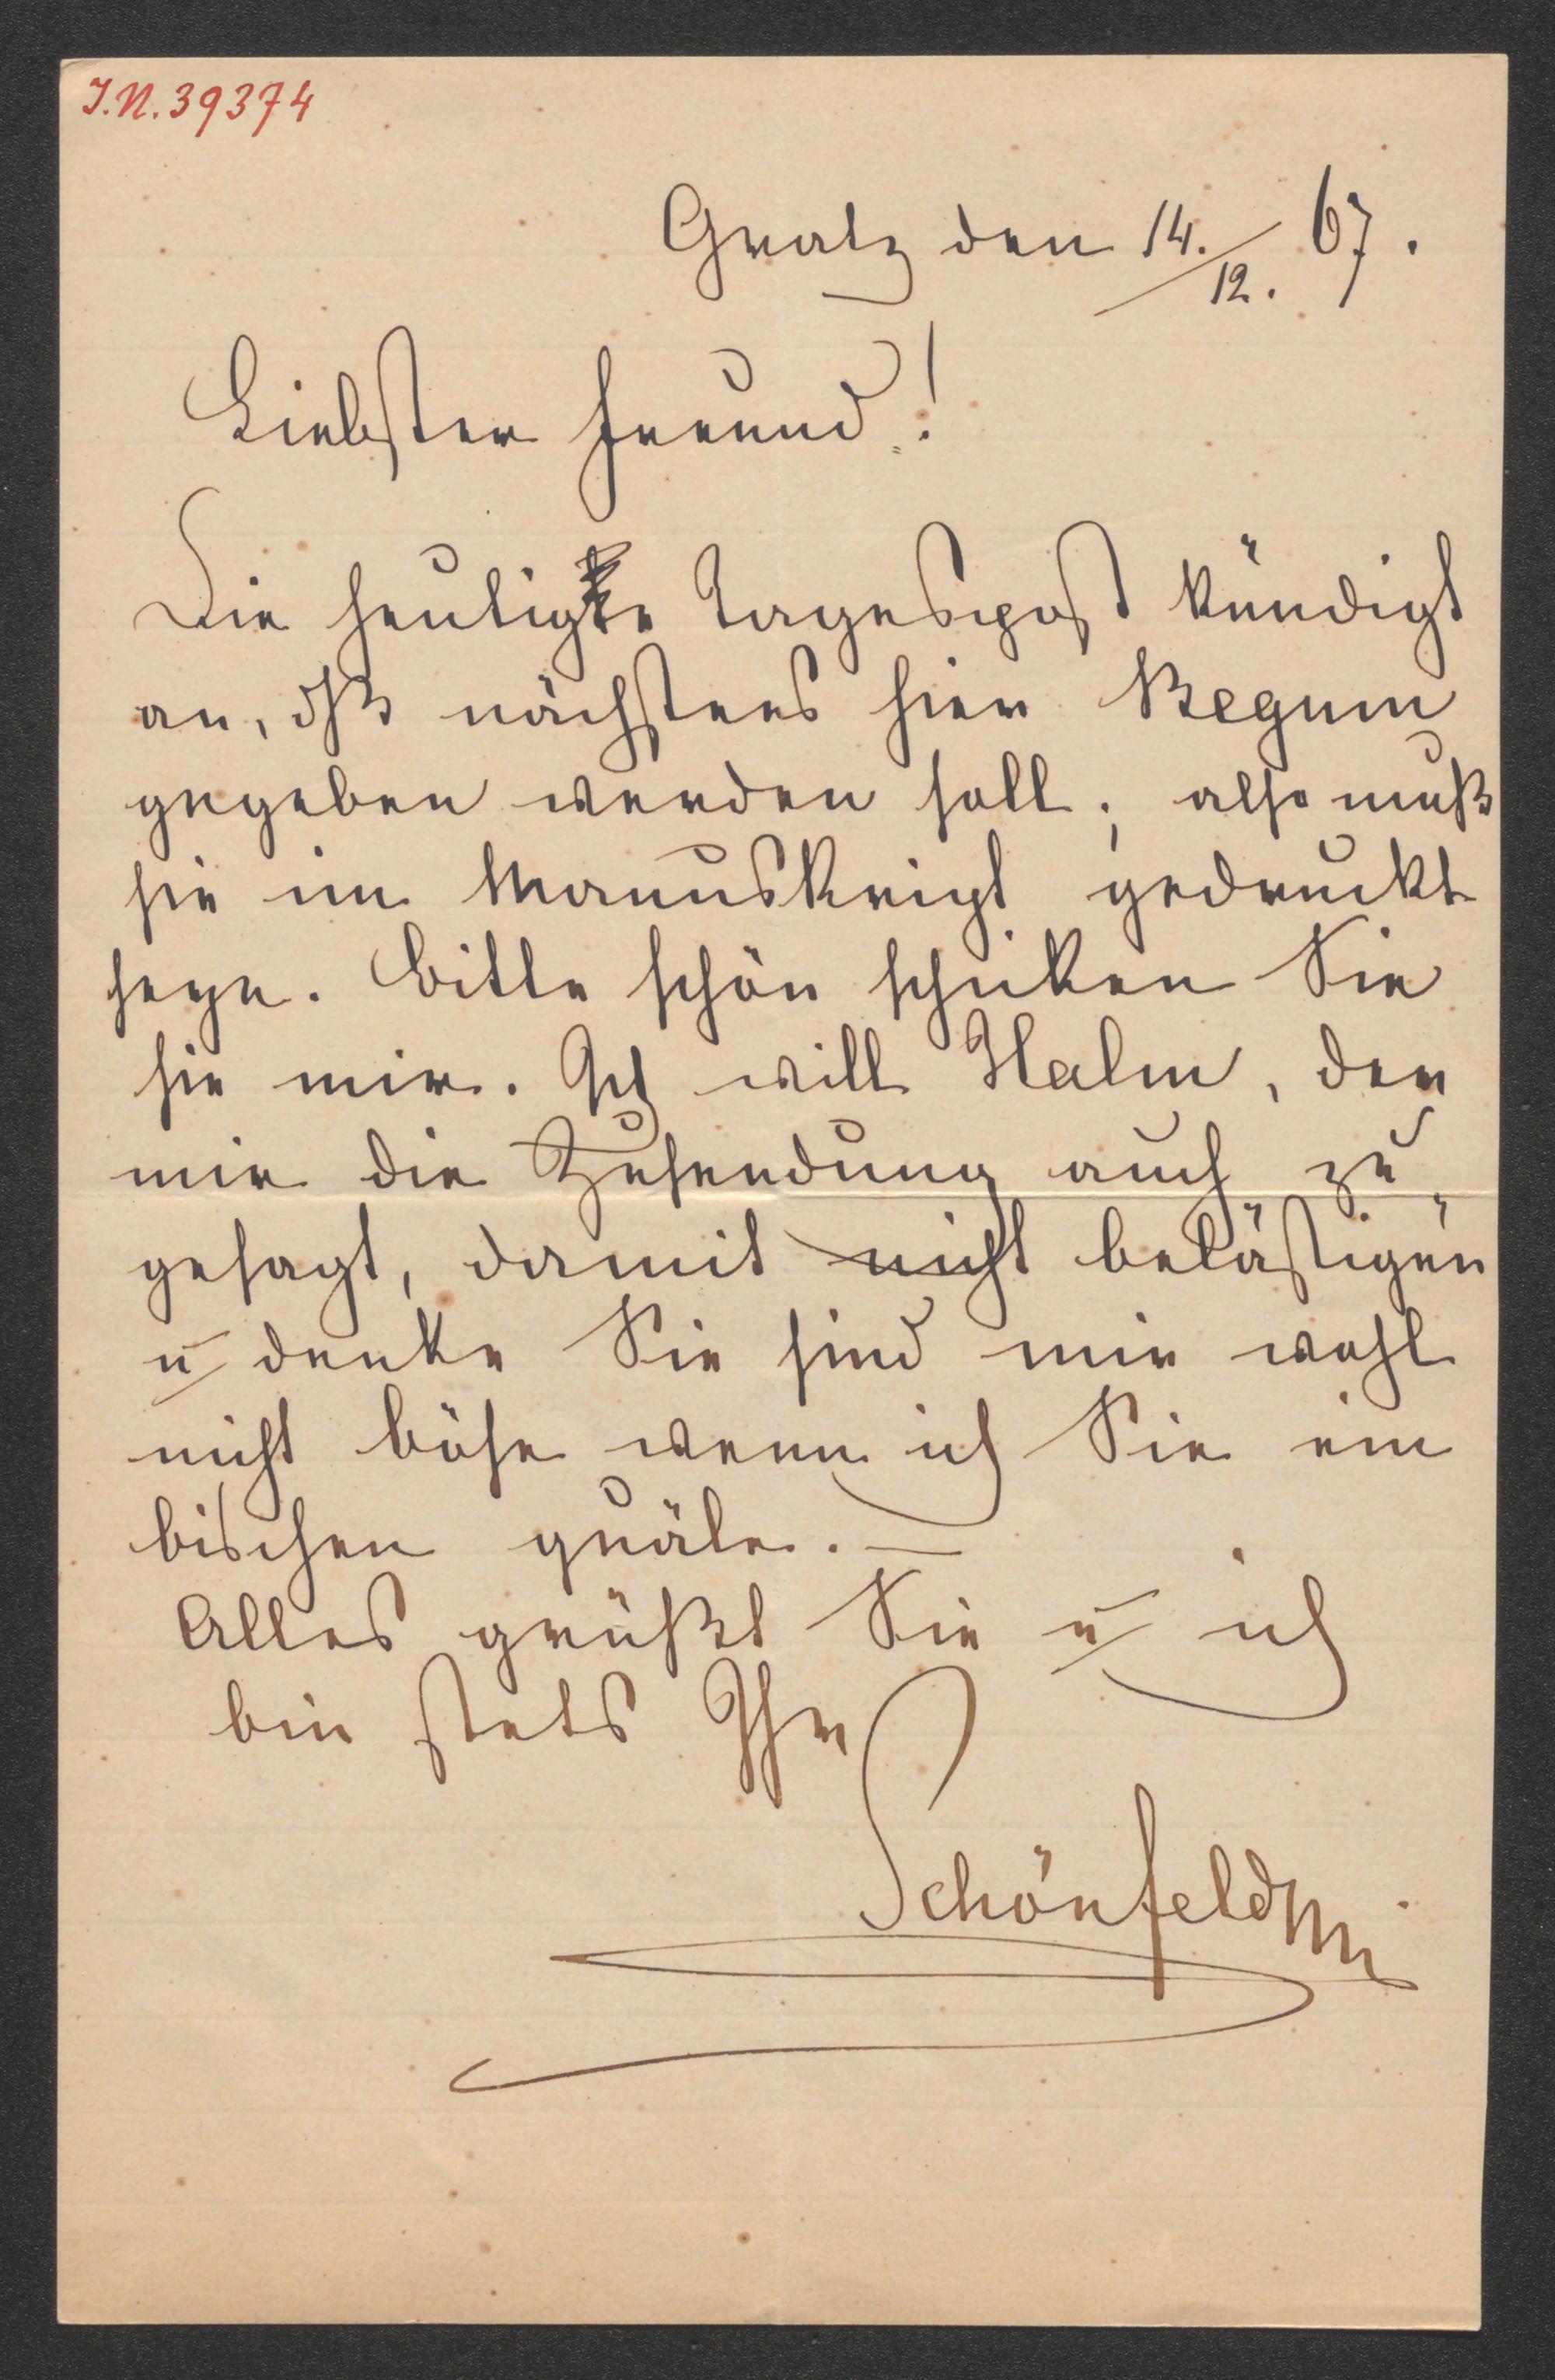 I.N. 39374
Gratz den 14./12. 67.
Liebster Freund!
Die heutige Tagespost kündigt
an, dß nächstens hier Begum
gegeben werden soll; also muß
sie im Manuskript gedruckt
seyn. Bitte schön schicken Sie
sie mir. Ich will Halm, der
mir die Zusendung auch zu„
gesagt, damit nicht belästigen
u denke Sie sind mir wohl
nicht böse wenn ich Sie ein
bischen quäle. —
Alles grüßt Sie u ich
bin stets Ihr
Schönfeld